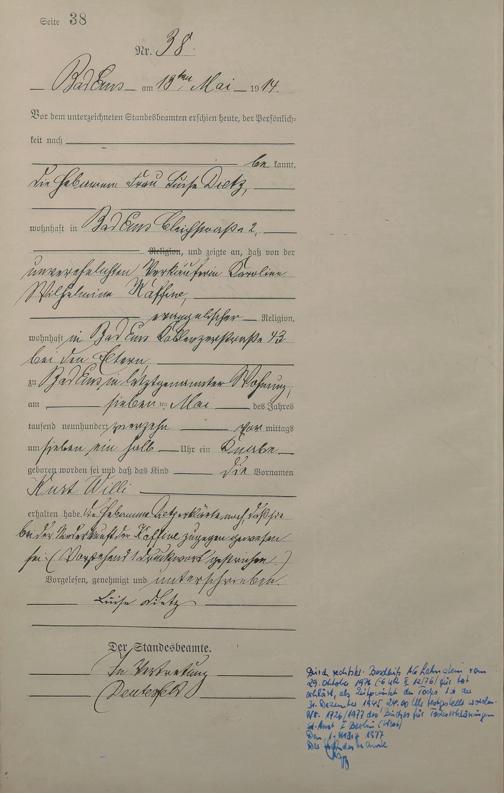 Seite 38
Nr. 38.
Bad Ems am 13ten Mai 1914.
Vor dem unterzeichneten Standesbeamten erschien heute, der Persönlich-
keit nach
be kannt,
die Hebamme Frau Luise Dietz,
wohnhaft in Bad Ems Bleichstraße 2,
Religion, und zeigte an, daß von der
unverehelichten Verkäuferin Karoline
Wilhelmine
evangelischer Religion,
wohnhaft in Bad Ems Koblenzerstraße 43
bei den Eltern,
zu Bad Ems in letztgenannter Wohnung,
am sieben ten Mai des Jahres
tausend neunhundert vierzehn vor mittags
um sieben ein halb Uhr ein Knabe
geboren worden sei und daß das Kind die Vornamen
Kurt Willi
erhalten habe. Die Hebamme Dietz erklärte noch, daß sie
bei der Niederkunft der zugegen gewesen
sei. (Vorstehend 1 Druckwort gestrichen.)
Vorgelesen, genehmigt und unterschrieben.
Luise Dietz
Der Standesbeamte.
In Vertretung
Durch rechtskr. Beschluß AG Lahnstein vom
29. Oktober 1976 ist
erklärt, als Zeitpunkt des Todes ist der
31. Dezember 1945, 24.00 Uhr festgestellt worden.
Nr. 1726/1977 des Buches für Todeserklärungen
St.Amt I Berlin (West)
1977
Der Standesbeamte